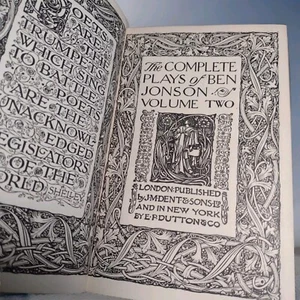 POETS
ARE THE
TRUMPETS
WHICH SING
TO BATTLE
POETS
ARE THE
UNACKNOWL
EDGED
LEGISLATORS
OF THE
WORLD SHELLEY
The COMPLETE
PLAYS of BEN
JONSON
VOLUME TWO
LONDON: PUBLISHED
by J.M. DENT & SONS LTD
AND IN NEW YORK
BY E.P. DUTTON & CO